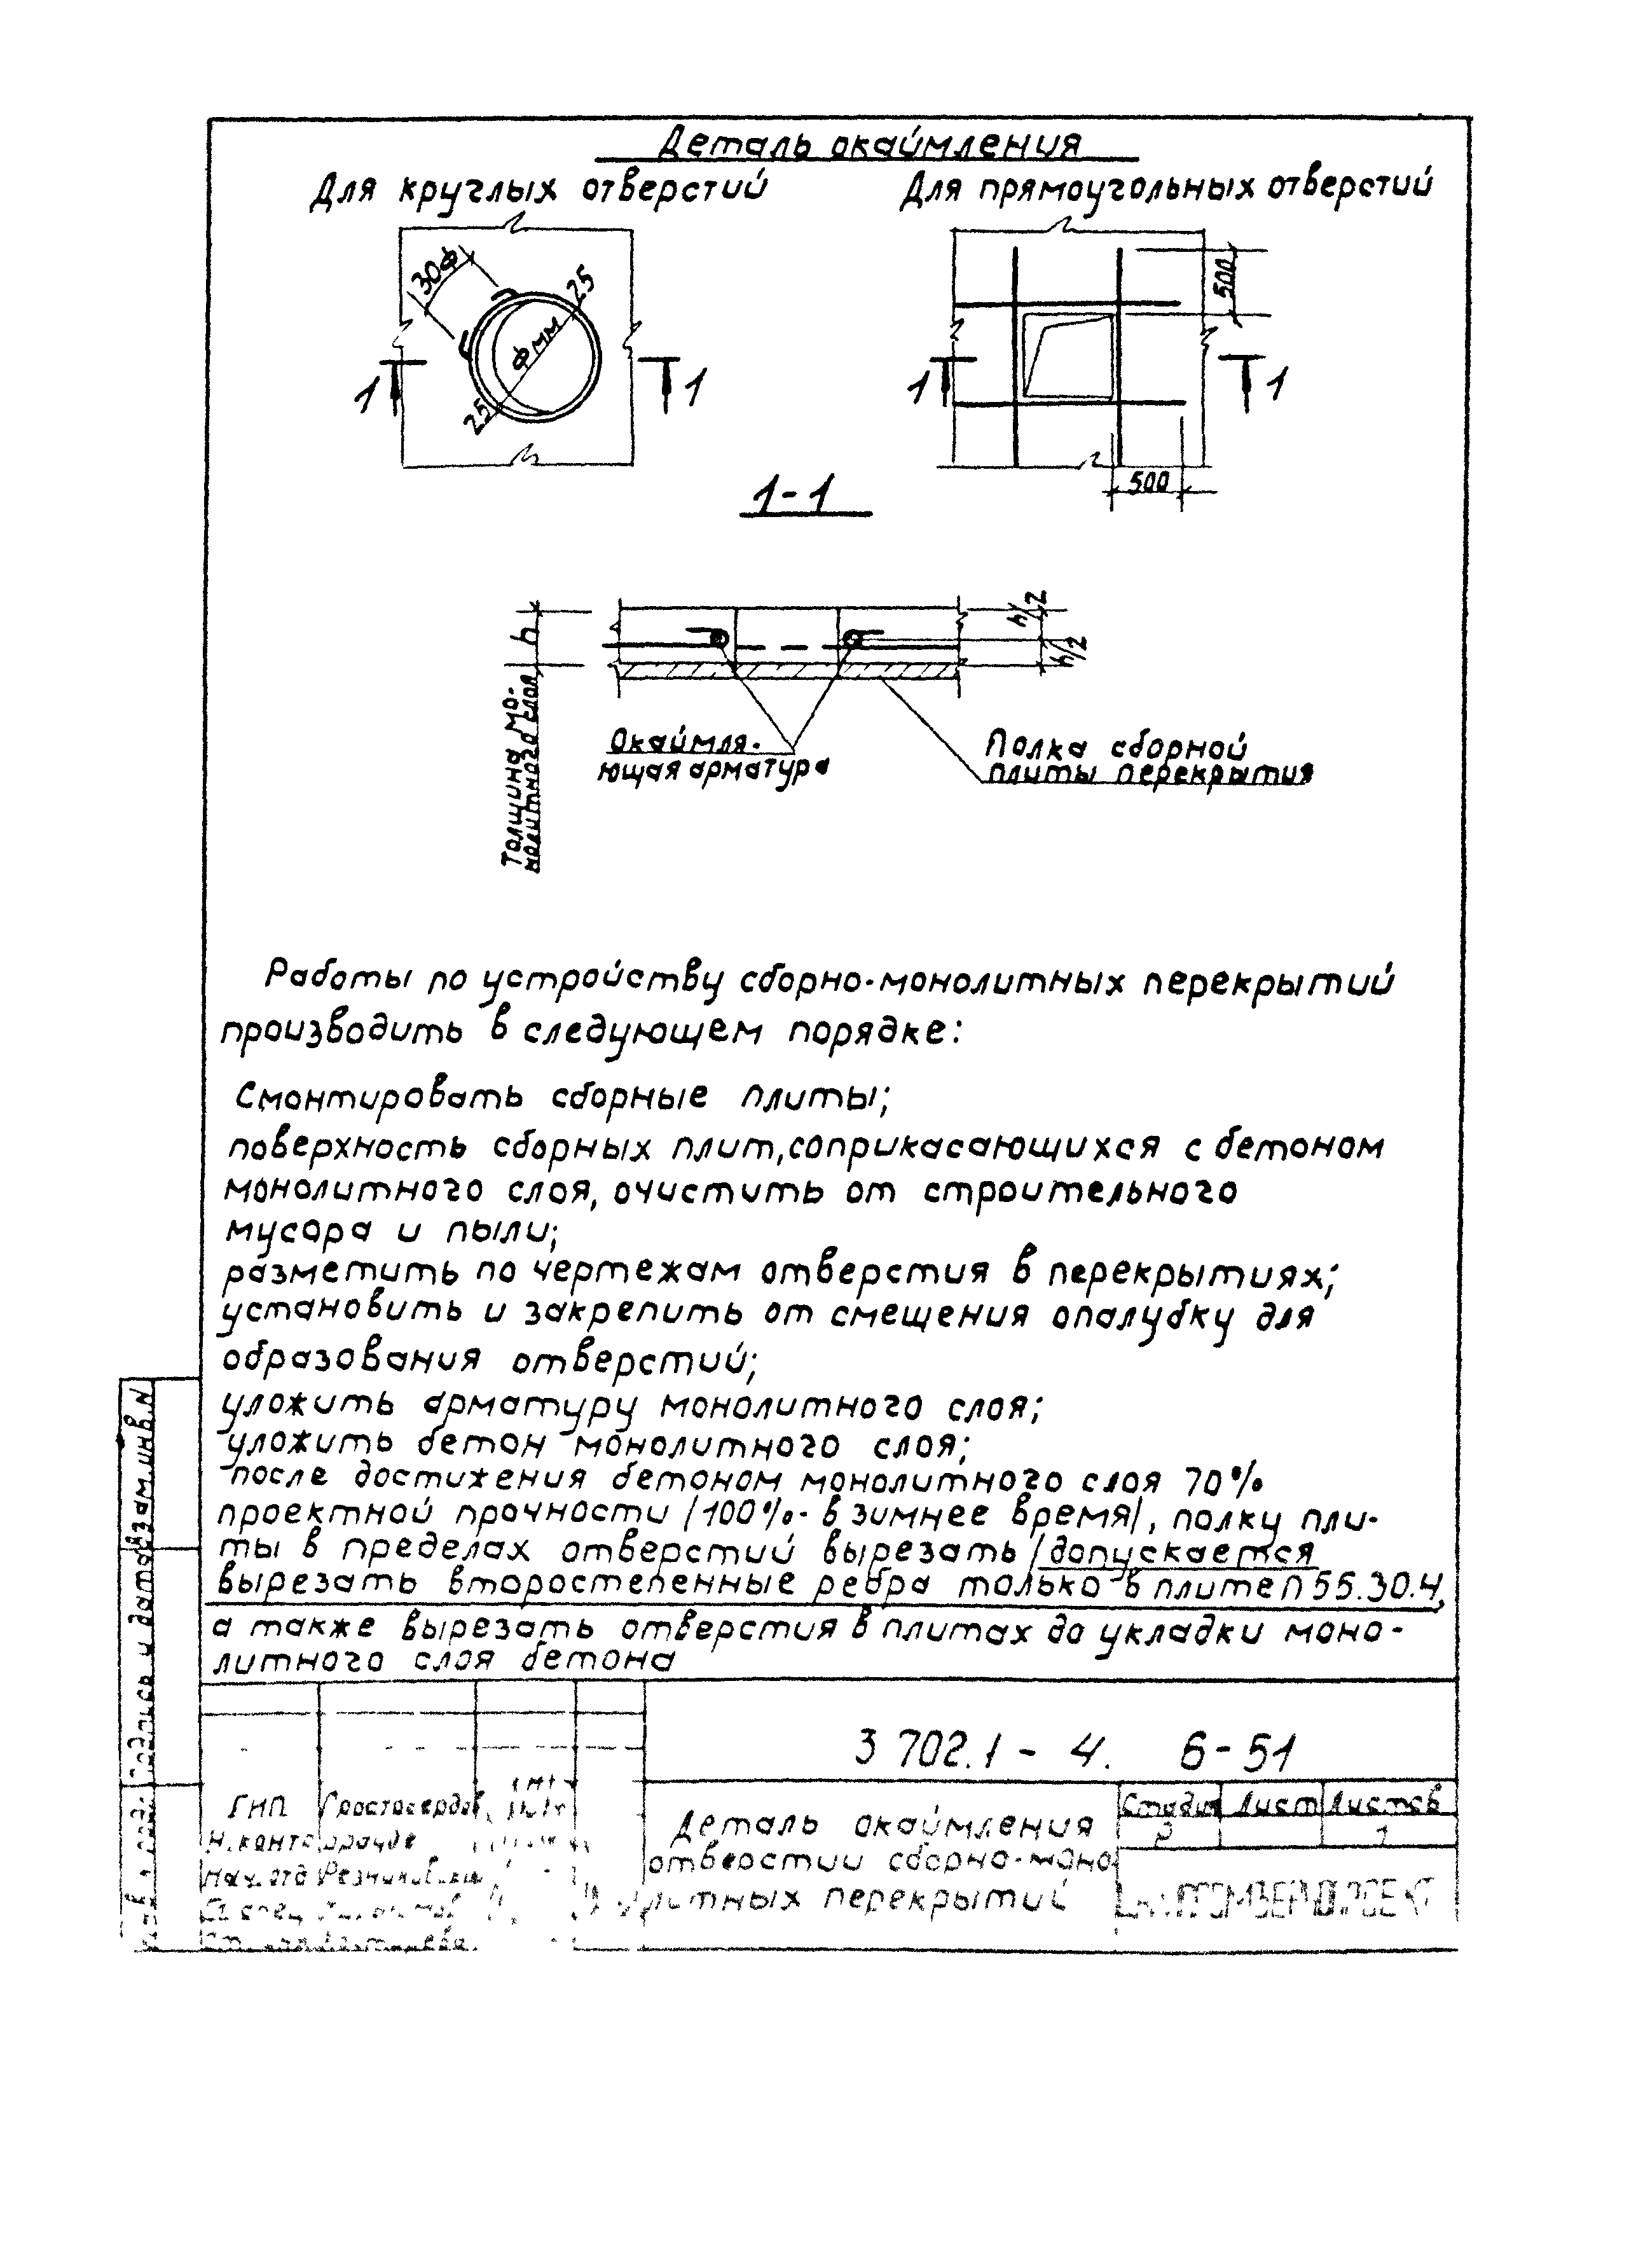 Деталь окаймления
Для круглых отверстий
Для прямоугольных отверстий
30ф
25
фмм
25
1
1
500
1
1
500
1-1
h
h/2
h/2
Толщина мо-
нолитного слоя
Окаймля-
ющая арматура
Полка сборной
плиты перекрытия
Работы по устройству сборно-монолитных перекрытий
производить в следующем порядке:
Смонтировать сборные плиты;
поверхность сборных плит, соприкасающихся с бетоном
монолитного слоя, очистить от строительного
мусора и пыли;
разметить по чертежам отверстия в перекрытиях;
установить и закрепить от смещения опалубку для
образования отверстий;
уложить арматуру монолитного слоя;
уложить бетон монолитного слоя;
после достижения бетоном монолитного слоя 70%
проектной прочности /100%- в зимнее время/, полку пли-
ты в пределах отверстий вырезать /допускается
вырезать второстепенные ребра только в плите П55.30.4,
а также вырезать отверстия в плитах до укладки моно-
литного слоя бетона
3 702.1 - 4. 6-51
Деталь окаймления
отверстии сборно-моно
литных перекрытий
Стадия Лист Листов
Р 1
ГИП
Н.контр
Нач.отд
подпись и дата
Взам.инв.N